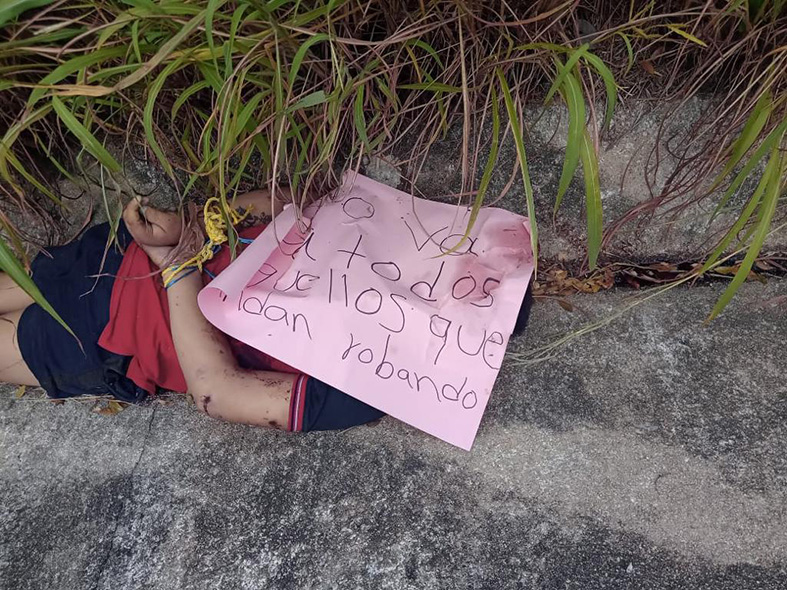 o va
a todos
quellos que
ldan robando